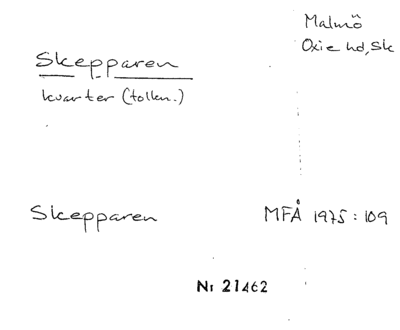 Malmö
Oxie hd, Sk
Skepparen
kvarter (tolkn.)
Skepparen MFÅ 1975: 109
Nr 21462